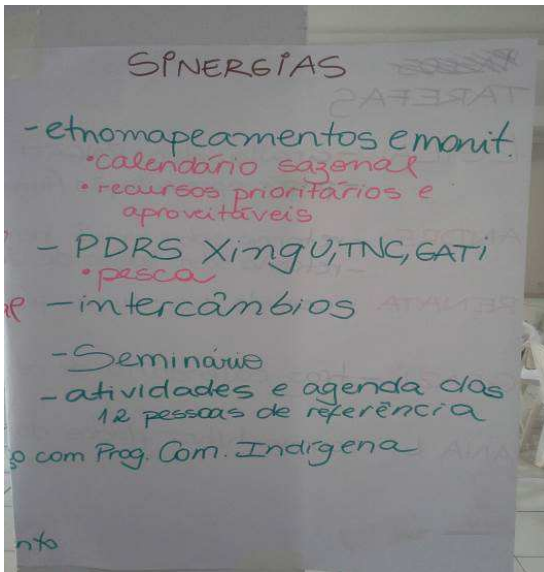 SINERGIAS
- etnomapeamentos e monit.
• calendário sazonal
• recursos prioritários e
aproveitáveis
- PDRS Xingu, TNC, GATI
• pesca
- intercâmbios
- Seminário
- atividades e agenda das
12 pessoas de referência
com Prog. Com. Indígena
nto
TAREFAS
RENATA